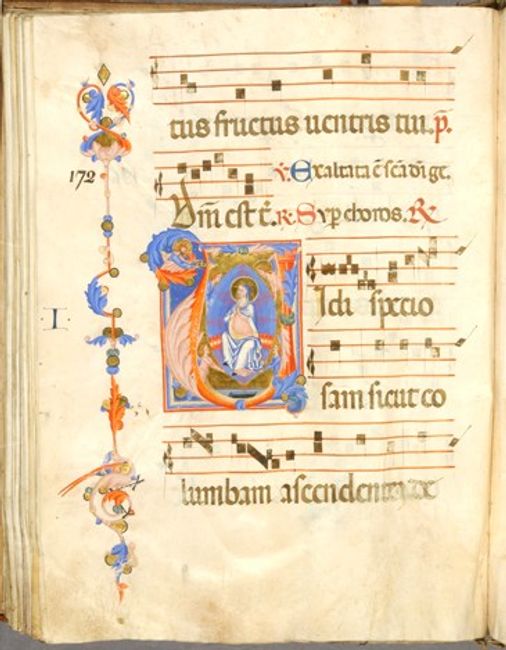 tus fructus uentris tui. p̄.
172
℣. Exaltata ē sc̄a dī ge.
Dn̄m est t̄. ℟. Sup choros. ℟
VIdi specio
I
sam sicut co
lumbam ascendentem de